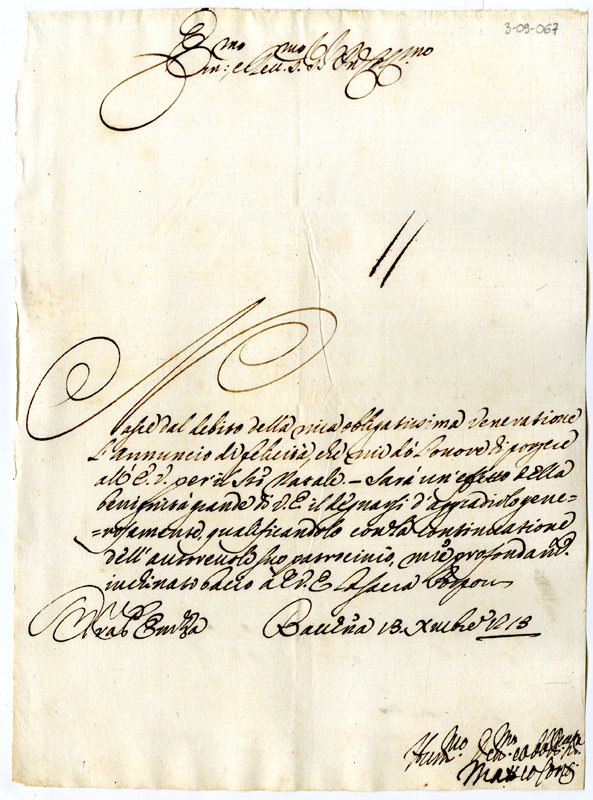 3-09-067
Em.mo
Nasce dal debito della mia obligatissima veneratione
l'annuncio di felicità, che mi dò l'onore di porgere
all'E.V. per il S.mo Natale. Sarà un'effetto della
benignità grande di V.E. il degnarsi d'aggradirlo gene-
=rosamente, qualificandolo con la continuatione
dell'autorevole suo patrocinio, m're profondam.
inchinato bacio à V.E. la sacra Porpora
Ravenna 13. Xmbre
Hum.mo
Marco